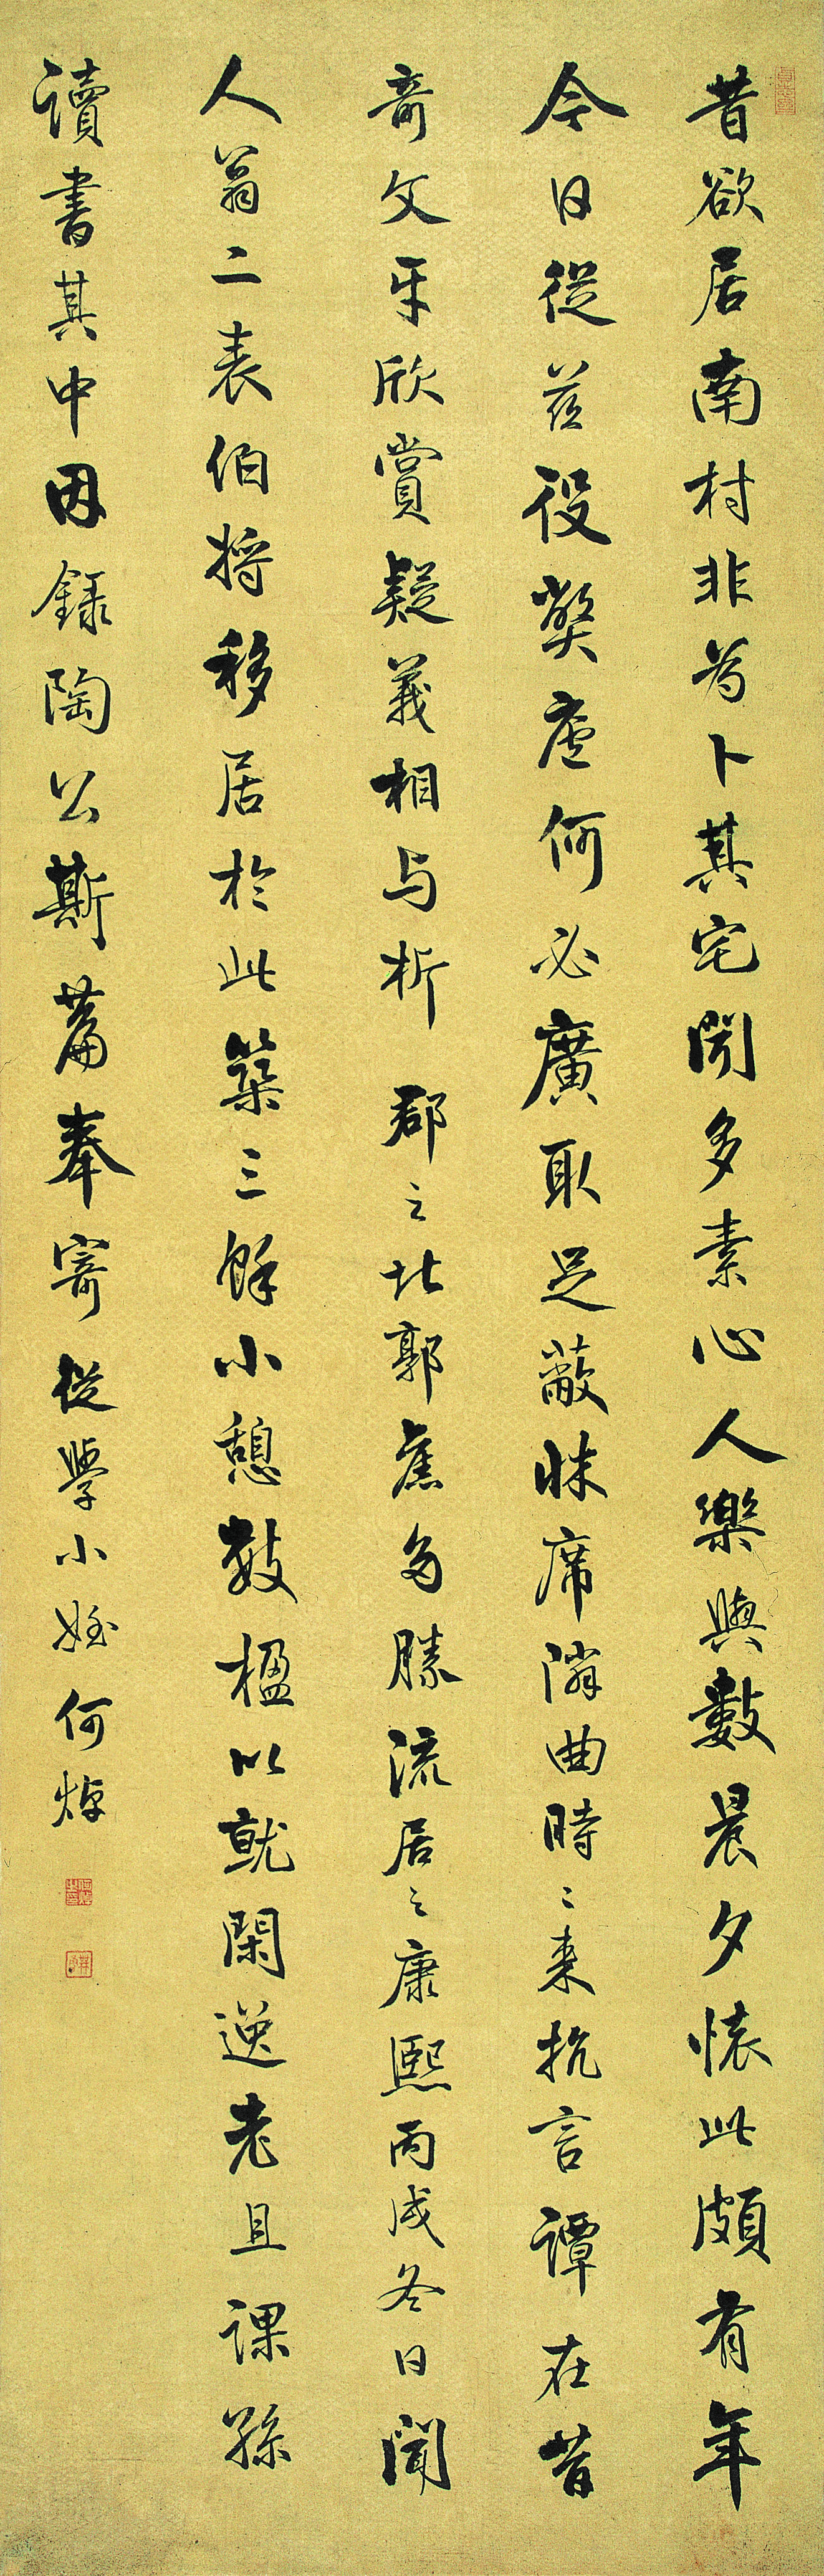 昔欲居南村非為卜其宅聞多素心人樂與數晨夕懷此頗有年
今日從茲役弊廬何必廣取足蔽牀席隣曲時〻来抗言譚在昔
奇文共欣賞疑義相与析 郡之北郭舊多勝流居之康熙丙戌冬日聞
人翁二表伯将移居於此築三餘小憩數楹以就閑逸老且課孫
讀書其中因錄陶公斯篇奉寄從學小姪何焯